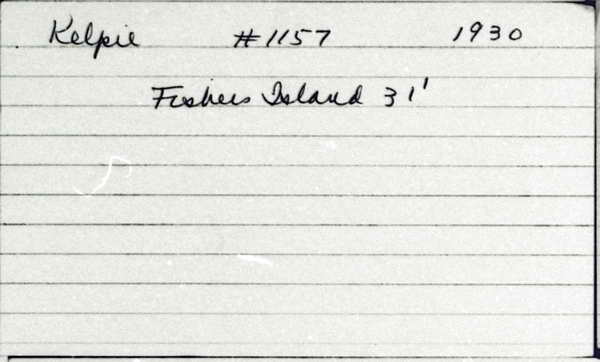 Kelpie #1157 1930
Fishers Island 31'